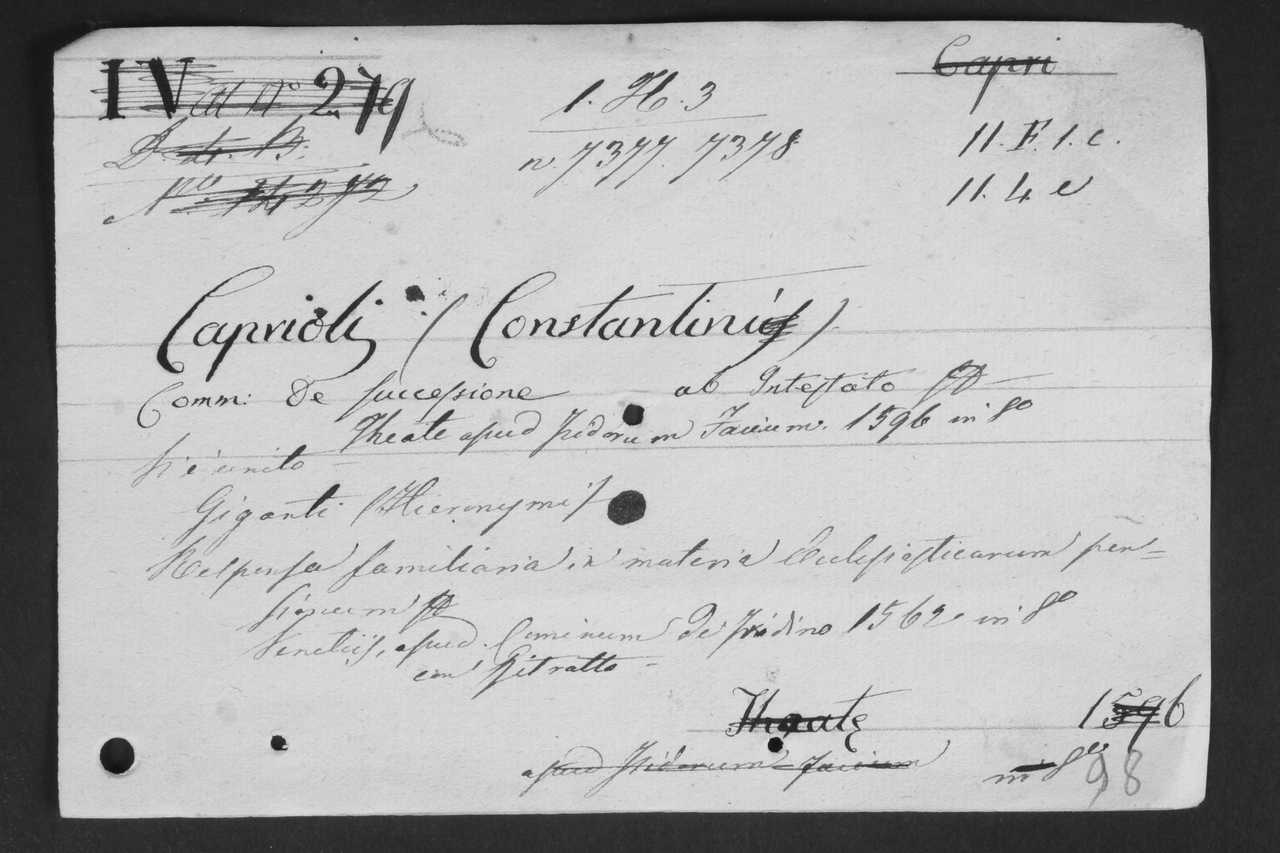 IV al N° 279
Capri
1. H. 3
D at. B.
n. 7377. 7378
11. F. 1. c.
11. 4 e
Caprioli (Constantini)
Comm: De successione ab Intestato
Theate apud Isidorum Facium. 1596 in 8°
Si è unito
Giganti (Hieronymi)
Responsa familiaria in materia Ecclesiasticarum pen=
sionum
Venetijs, apud Cominum de Tridino 1562 in 8°
con Ritratto
Theate 1596
apud Isidorum Facium in 8°
98